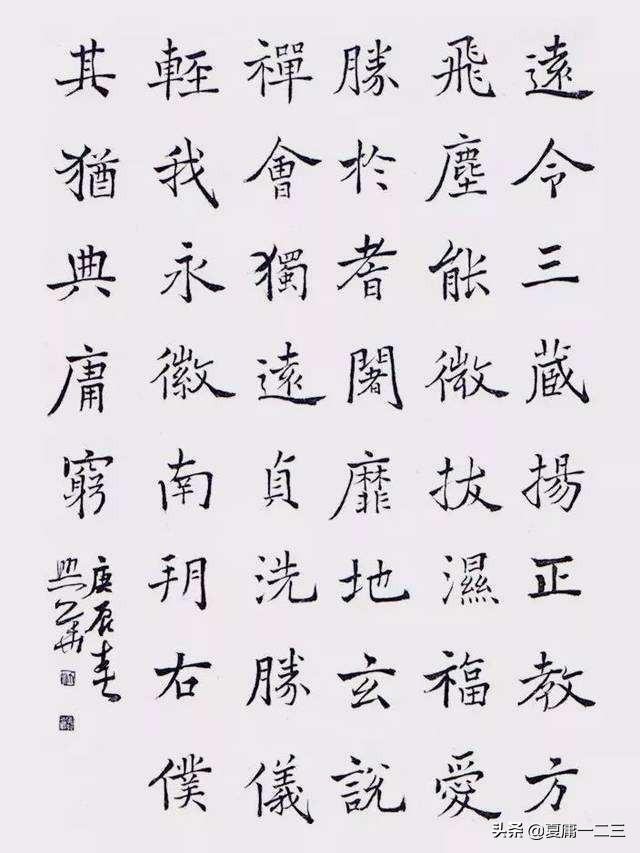 遠令三蔵揚正教方
飛塵能微拔濕福愛
勝於耆闍靡地玄說
禪會獨遠貞洗勝儀
輕我永徽南右僕
其猶典庸窮
庚辰春
头条 @夏庸一二三